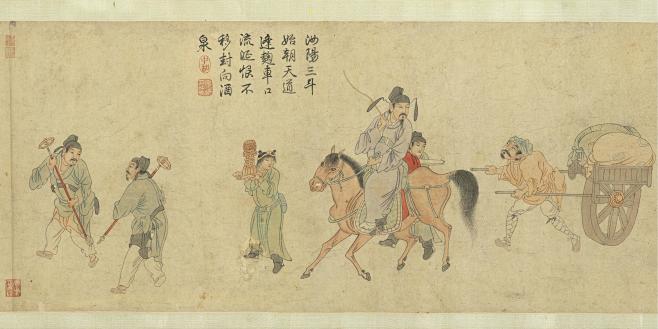 汝陽三斗
始朝天道
逢麹車口
流涎恨不
移封向酒
泉